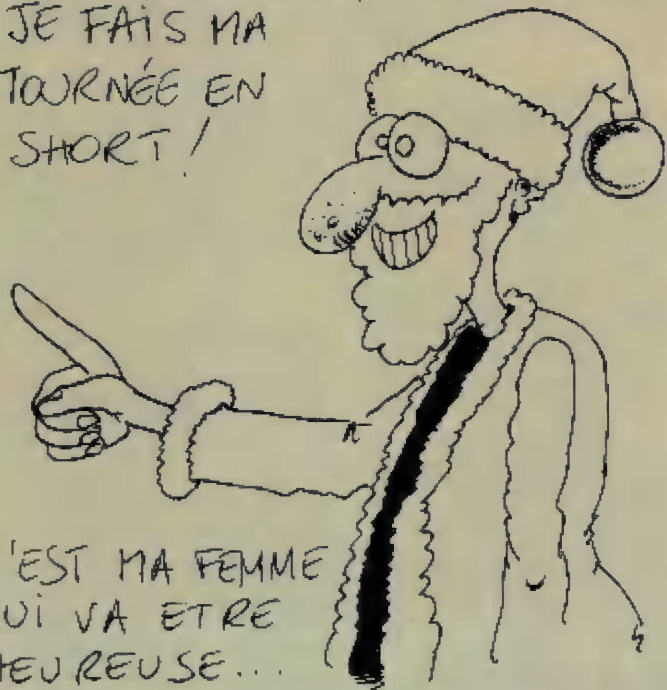 JE FAIS MA
TOURNÉE EN
SHORT!
'EST MA FEMME
UI VA ETRE
HEUREUSE...